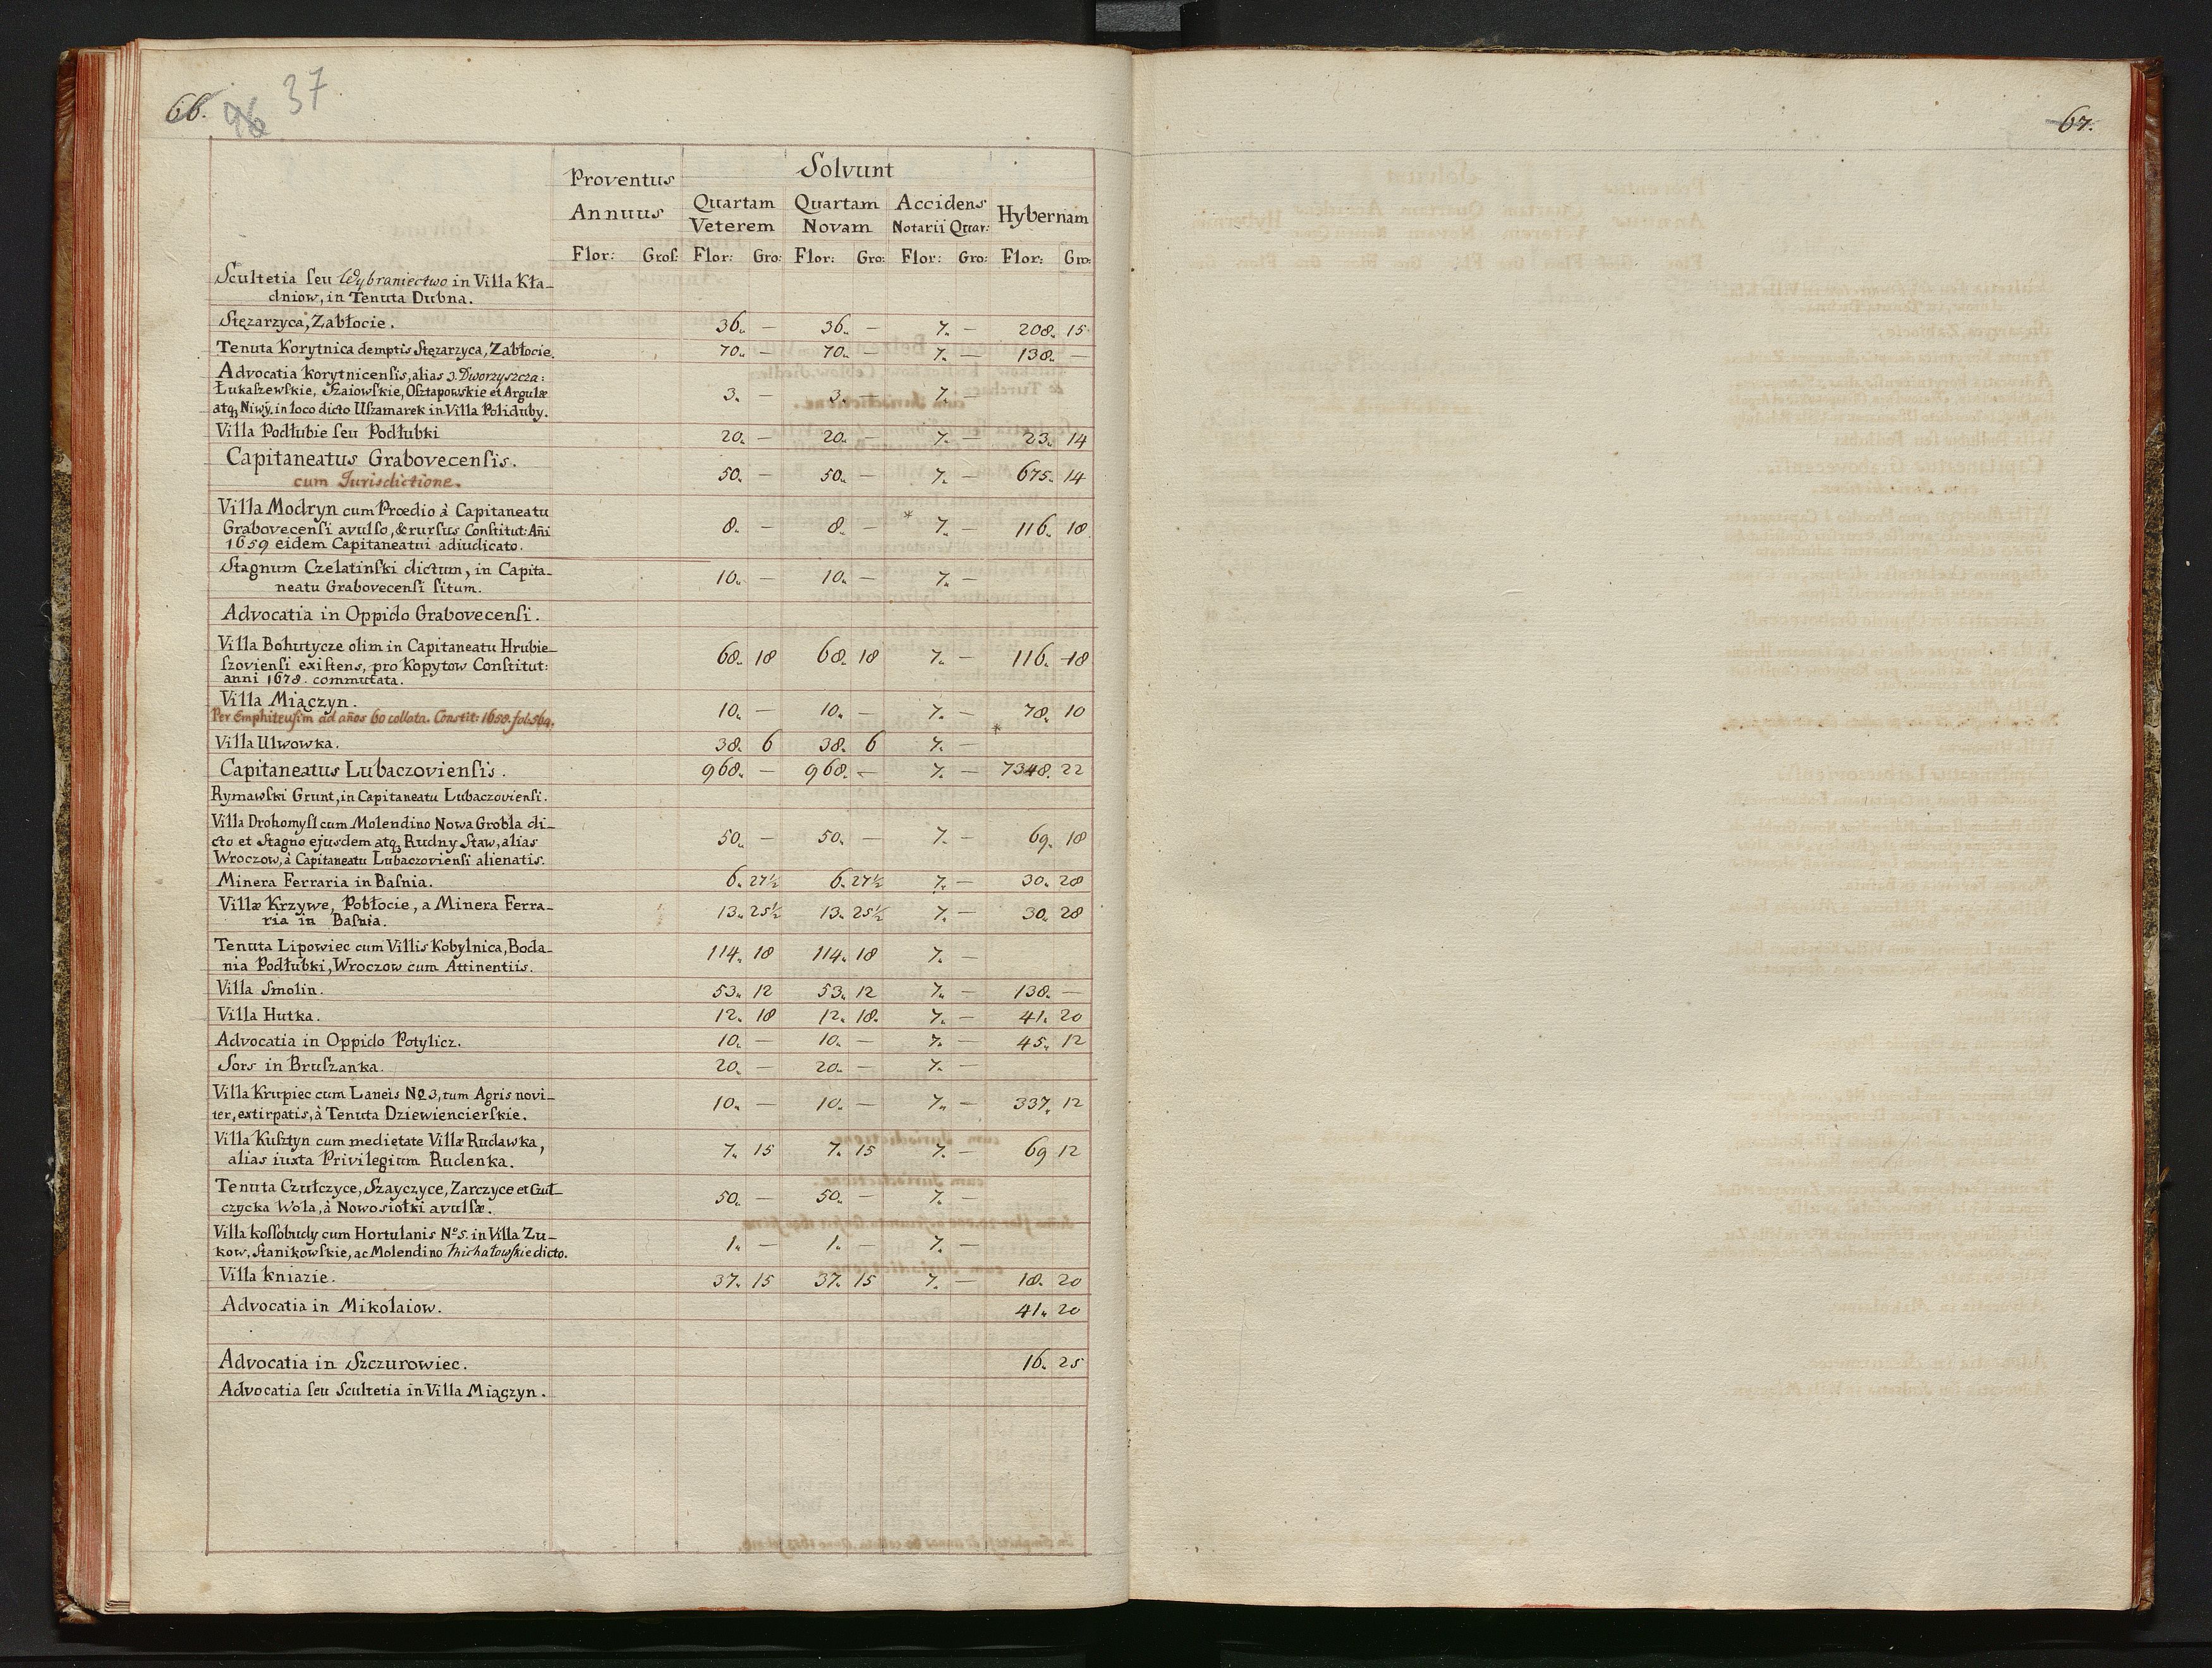 66. 96 37
Proventus Annuus Solvunt
Quartam Veterem Quartam Novam Accidens Notarii Quar: Hybernam
Flor: Gros: Flor: Gro: Flor: Gro: Flor: Gro: Flor: Gro:
Scultetia seu Wybraniectwo in Villa Kła-
dniow, in Tenuta Dubna.
Stęzarzyca, Zabłocie. 36. — 36. — 7. — 208. 15
Tenuta Korytnica demptis Stęzarzyca, Zabłocie. 70. — 70. — 7. — 138. —
Advocatia Korytnicensis, alias 3. Dworzyszcza:
Łukaszewskie, Szaiowskie, Osztapowskie et Argulæ
atq; Niwÿ, in loco dicto Uszamarek in Villa Poliduby. 3. — 3. — 7. —
Villa Podłubie seu Podłubki 20. — 20. — 7. — 23. 14
Capitaneatus Grabovecensis.
cum Jurisdictione. 50. — 50. — 7. — 675. 14
Villa Modryn cum Prœdio à Capitaneatu
Grabovecensi avulso, & rursus Constitut: Añi
1659 eidem Capitaneatui adiudicato. 8. — 8. — * 7. — 116. 18
Stagnum Czelatinski dictum, in Capita-
neatu Grabovecensi situm. 10. — 10. — 7. —
Advocatia in Oppido Grabovecensi.
Villa Bohutycze olim in Capitaneatu Hrubie-
szoviensi existens, pro Kopytow Constitut:
anni 1678. commutata. 68. 18 68. 18 7. — 116. 18
Villa Miączyn.
Per Emphiteusim ad años 60 collata. Constit: 1658. fol. 564. 10. — 10. — 7. — 78. 10
Villa Ulwowka. 38. 6 38. 6 7. — *
Capitaneatus Lubaczoviensis. 968. — 968. — 7. — 7348. 22
Rymawski Grunt, in Capitaneatu Lubaczoviensi.
Villa Drohomysl cum Molendino Nowa Grobla di-
cto et Stagno ejusdem atq; Rudny Staw, alias
Wroczow, à Capitaneatu Lubaczoviensi alienatis. 50. — 50. — 7. — 69. 18
Minera Ferraria in Basnia. 6. 27½ 6. 27½ 7. — 30. 28
Villæ Krzywe, Pobłocie, a Minera Ferra-
ria in Basnia. 13. 25½ 13. 25½ 7. — 30. 28
Tenuta Lipowiec cum Villis Kobylnica, Boda-
nia Podłubki, Wroczow cum Attinentiis. 114. 18 114. 18 7. —
Villa Smolin. 53. 12 53. 12 7. — 138. —
Villa Hutka. 12. 18 12. 18. 7. — 41. 20
Advocatia in Oppido Potylicz. 10. — 10. — 7. — 45. 12
Sors in Bruszanka. 20. — 20. — 7. —
Villa Krupiec cum Laneis No 3, tum Agris novi-
ter, extirpatis, à Tenuta Dziewiencierskie. 10. — 10. — 7. — 337. 12
Villa Kusztyn cum medietate Villæ Rudawka,
alias iuxta Privilegium Rudenka. 7. 15 7. 15 7. — 69 12
Tenuta Czułczyce, Szayczyce, Zarczyce et Guł-
czycka Wola, à Nowosiołki avulsæ. 50. — 50. — 7. —
Villa Kossobudy cum Hortulanis No 5. in Villa Zu-
kow, Stanikowskie, ac Molendino Michałowskie dicto. 1. — 1. — 7. —
Villa Kniazie. 37. 15 37. 15 7. — 18. 20
Advocatia in Mikołaiow. 41. 20
Advocatia in Szczurowiec. 16. 25
Advocatia seu Scultetia in Villa Miączyn.
67.